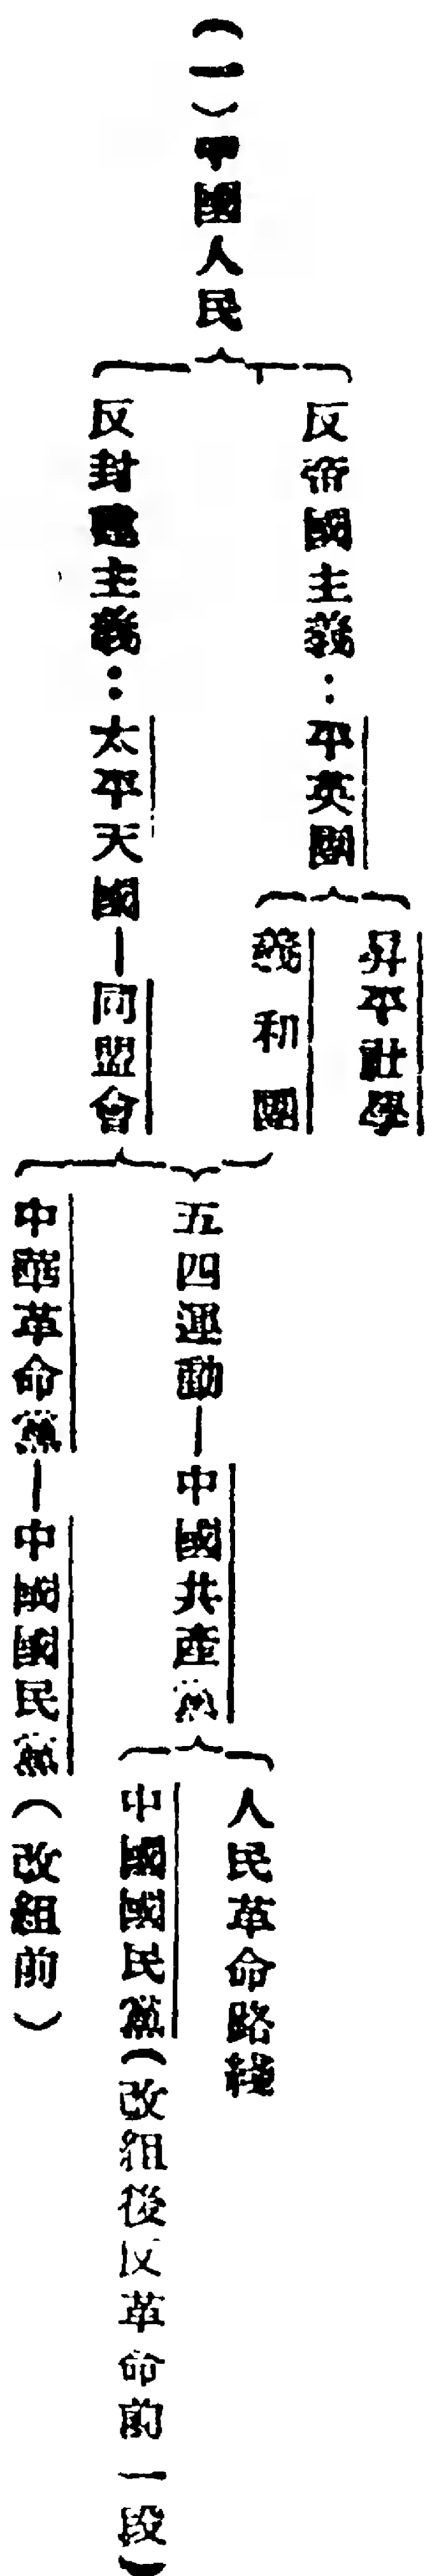 （一）中國人民
反帝國主義：平英團
昇平社學
義和團
反封建主義：太平天國—同盟會
五四運動—中國共產黨
人民革命路綫
中國國民黨（改組後反革命前一段）
中華革命黨—中國國民黨（改組前）